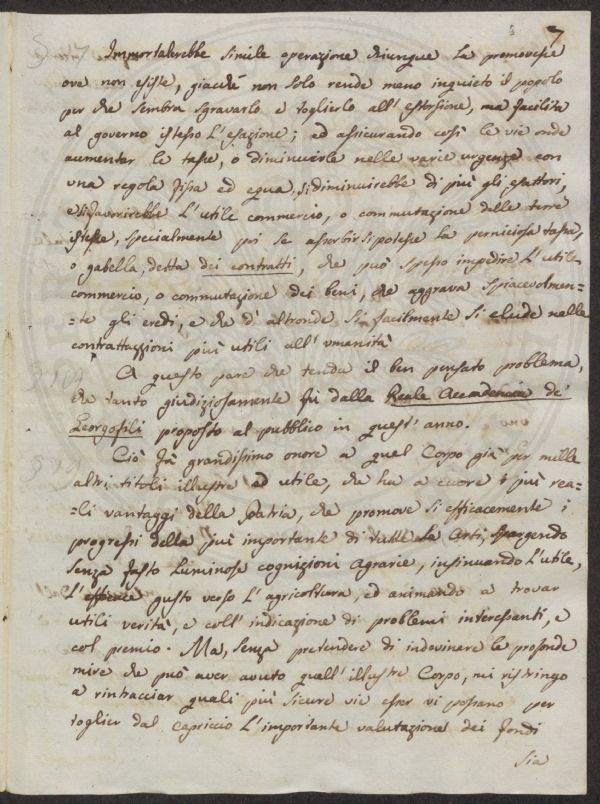 7
Immortalerebbe simile operazione chiunque la promovesse
ove non esiste, giacché non solo rende meno inquieto il popolo
per che sembra sgravarlo e toglierlo all'estorsione, ma facilita
al governo istesso l'esazione; ed assicurando così le vie onde
aumentar le tasse, o diminuirle nelle varie urgenze con
una regola fissa ed egua, si diminuirebbe di più gli esattori,
e si favorirebbe l'utile commercio, o commutazione delle terre
istesse, specialmente poi se assorbir si potesse la perniciosa tassa,
o gabella, detta dei contratti, che può spesso impedire l'utile
commercio, o commutazione dei beni, che aggrava spiacevolmen-
-te gli eredi, e che d'altronde si facilmente si elude nelle
contrattazioni più utili all'umanità
A questo pare che tenda il ben pensato problema,
che tanto giudiziosamente fù dalla Reale Accademia de'
Georgofili proposto al pubblico in quest'anno.
Ciò fà grandissimo onore a quel Corpo già per mille
altri titoli illustre ed utile, che ha a cuore i più rea-
-li vantaggi della Patria, che promove si efficacemente i
progressi della più importante di tutte le Arti, spargendo
senza fasto luminose cognizioni agrarie, insinuando l'utile,
l'efficace gusto verso l'agricoltura, ed animando a trovar
utili verità, e coll'indicazione di problemi interessanti, e
col premio. Ma, senza pretendere di indovinare le profonde
mire che può aver avuto quell'illustre Corpo, mi ristringo
a rintracciar quali più sicure vie esser vi possano per
toglier dal capriccio l'importante valutazione dei fondi
sia